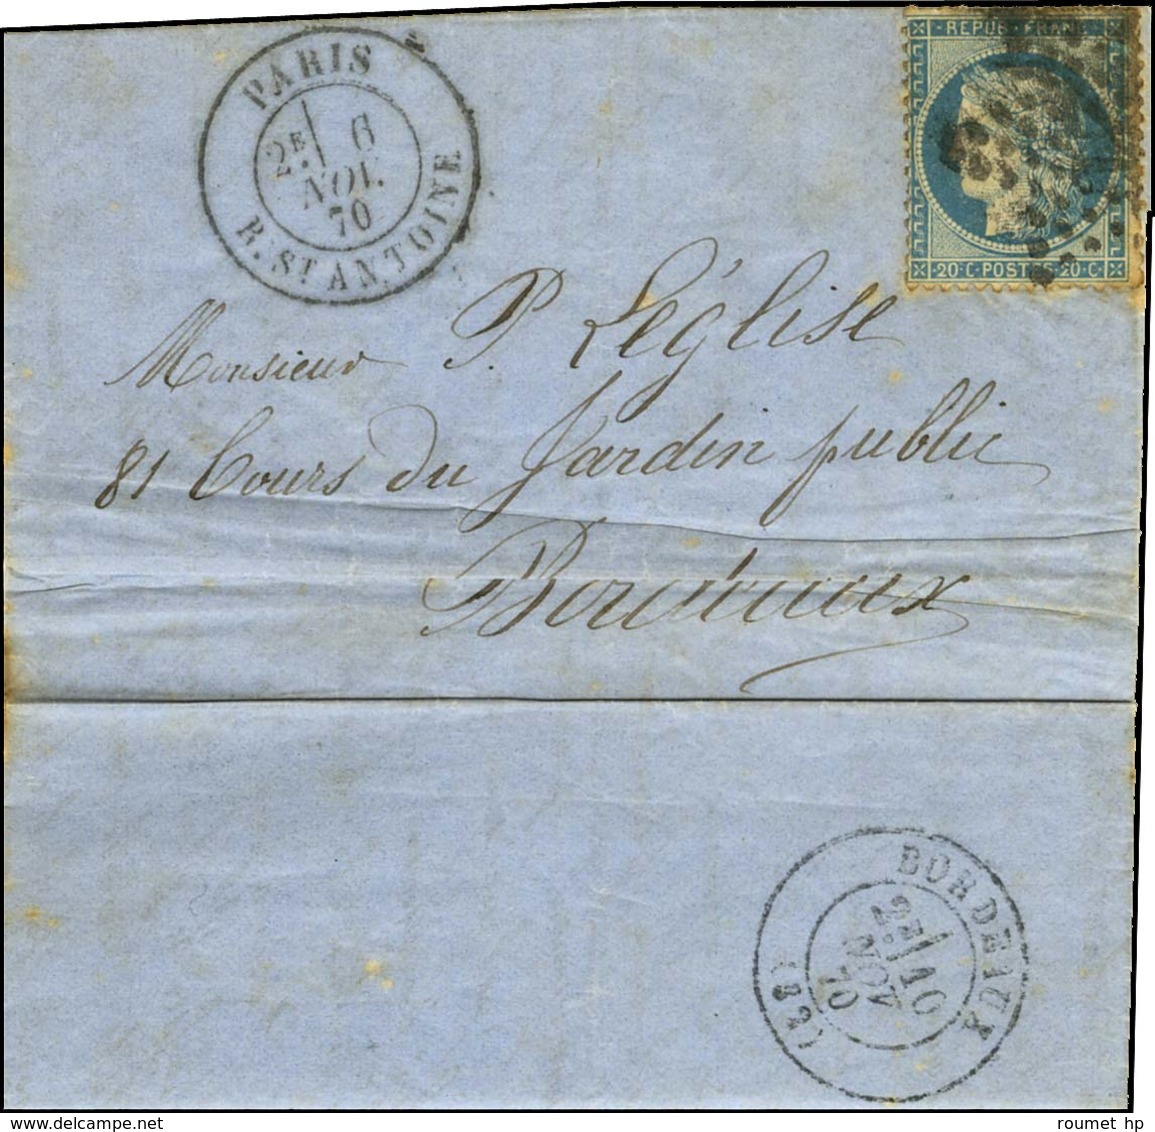 PARIS
2E 6
NOV.
70
R. ST ANTOINE
REPUB FRANC
20·C·POSTES·20·C
Monsieur P. Léglise
81 Cours du Jardin public
Bordeaux
BORDEAUX
2E 10
NOV
70
(32)
roumet hp